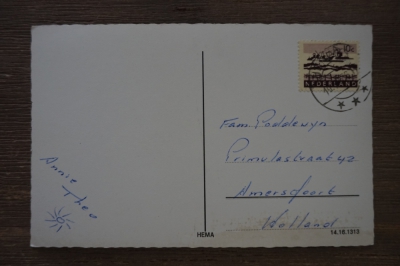 10c
NEDERLAND
Fam. Poddewyn
Primulastraat 42
Amersfoort
Holland
Annie
Theo
HEMA
14.16.1313